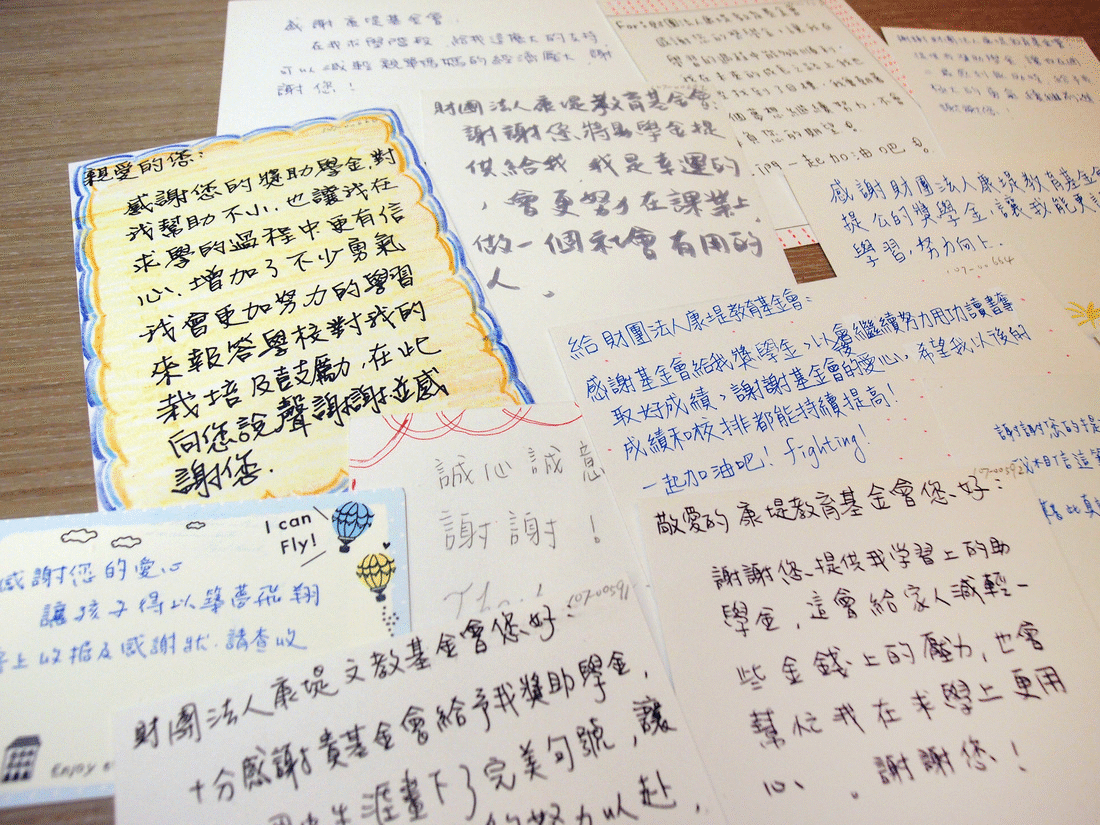 感謝康堤基金會,
在我求學階段,給我這麼大的支持,
可以減輕親單媽媽的經濟壓力,謝
謝您!
For:財團法人康堤教育基金會
感謝您的獎學金,讓我在
學習的過程中能夠順利,
一起加油吧
107-00664
財團法人康堤教育基金會:
謝謝您將助學金提
供給我 我是幸運的
,會更努力在課業上,
做一個社會有用的
人。
親愛的您:
感謝您的獎助學金,對
我幫助不小,也讓我在
求學的過程中更有信
心、增加了不少勇氣
我會更加努力的學習
來報答學校對我的
栽培及鼓勵,在此
向您說聲謝謝並感
謝您.
感謝財團法人康堤教育基金會
提公的獎學金,讓我能更
學習,努力向上.
給財團法人康堤教育基金會:
感謝基金會給我獎學金,以後會繼續努力用功讀書奪
取好成績,謝謝基金會的愛心,希望我以後的
成績和校排都能持續提高!
一起加油吧! fighting!
107-00592
謝謝您的提
我相信這筆
誠心誠意
謝謝!
107-00509
I can
Fly!
感謝您的愛心
讓孩子得以築夢飛翔
上收据及感謝狀.請查收
Enjoy
敬愛的康堤教育基金會您好:
謝謝您提供我学習上的助
學金,這會給家人減輕一
些金錢上的壓力,也會
幫忙我在求學上更用
心。謝謝您!
財團法人康堤文教基金會您好:
十分感謝貴基金會給予我獎助學金,
生涯畫下了完美句號,讓
的努力以赴,